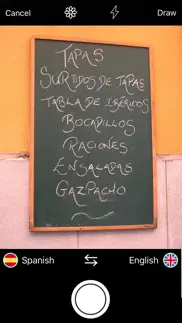 Cancel Draw
TAPAS
SURTIDOS DE TAPAS
TABLA DE IBÉRICOS
BOCADILLOS
RACIONES
ENSALADAS
GAZPACHO
Spanish English